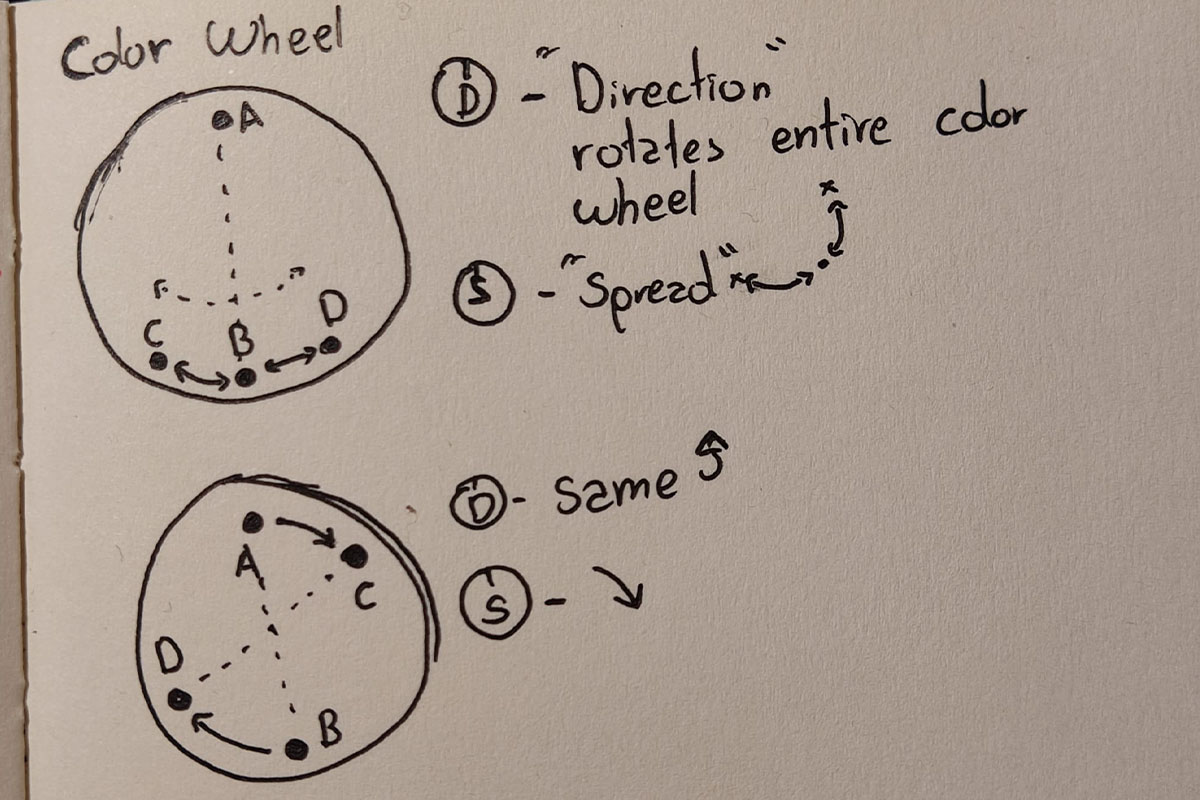 Color Wheel
A
C
B
D
D - "Direction"
rotates entire color
wheel
S - "Spread"
A
C
D
B
D - Same
S -